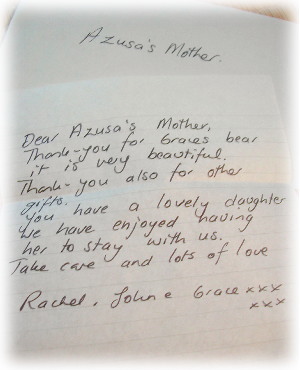 Azusa's Mother.
Dear Azusa's Mother,
Thank-you for Graces bear
it is very beautiful.
Thank-you also for other
gifts.
You have a lovely daughter
We have enjoyed having
her to stay with us.
Take care and lots of love
Rachel, John e Grace xxx
xxx